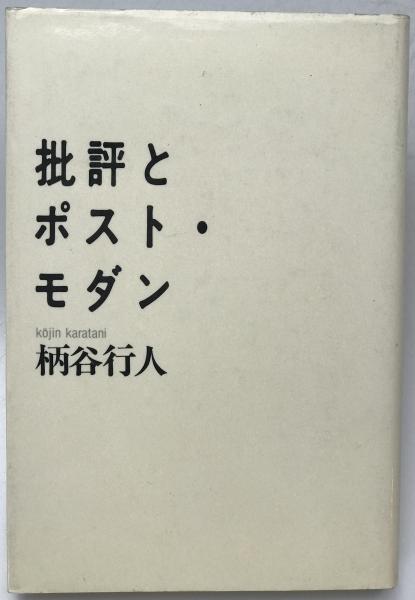 批評と
ポスト・
モダン
kōjin karatani
柄谷行人